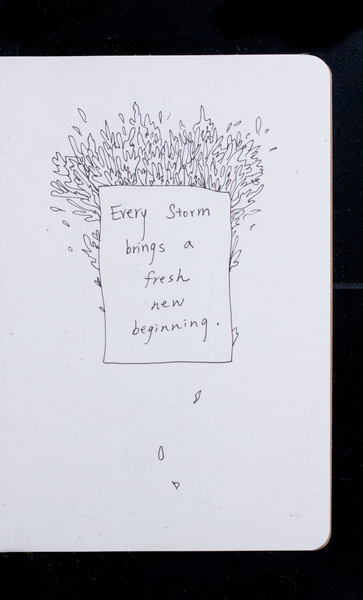 Every Storm
brings a
fresh
new
beginning.